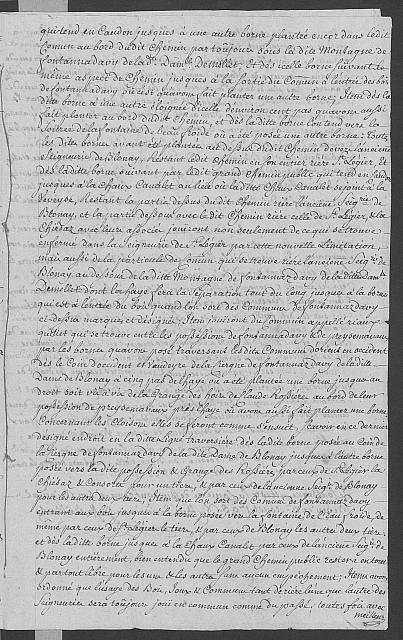 qui tend en Caudon jusques à une autre borne plantée encor dans ledit
Comun au bord dudit Chemin par toujours sous la dite Montagne de
fontannadavy de lad. Dam.le Demillet, Et dès icelle borne suivant le
même aspect de Chemin jusques à la sortie du Comun à l'entrée des bois
de fontanadavy où est quavons fait planter une autre borne; Item dès la
ditte borne à une autre éloignée d'icelle d'environ cent pas quavons aussi
fait planter au bord dudit Chemin, et dès la ditte borne l'on tend vers la
sortie de la fontaine de l'eau froide où a été posée une autre borne; Toutes
les dittes bornes avant été plantées au dessus dudit Chemin devers l'ancienne
Seigneurie de Blonay, Restant ledit Chemin en son entier rière S. Légier, Et
dès la ditte borne suivant par ledit grand Chemin public qui tend en Caudon
jusques à la Chaux Canalet au lieu où la ditte Chaux Canalet se joint à la
Veveyse, Restant la partie dessus dudit Chemin rière l'ancienne Seig.rie de
Blonay, et la partie dessous avec ledit Chemin rière celle de S. Légier, & la
Chiesaz avec leurs associés jouiront non seulement de ce qui se trouve
enfermé dans la Seigneurie de S. Légier par cette nouvelle Limitation,
mais aussi de la particelle de Comun qui se trouve rière l'ancienne Seig.rie de
Blonay au dessous de la ditte Montagne de fontannaz davy de la ditte Dam.le
Demillet dont la haye fera la séparation tout du long jusques à la borne
qui est à l'entrée du bois quand l'on sort des Communs de fontannaz davy
cy dessus marqués et désignés; Item jouiront du Commun appellé riaux
guillet qui se trouve entre les possessions de fontannaz davy & de preysemavaux
par les bornes quavons posé traversant lesdits Communs d'orient en occident
dès la Coin d'occident et vaudeyre de la Piergne de fontannaz davy de la ditte
Dame de Blonay à cinq pas de l'haye où a été plantée une borne jusques au
droit soit vis à vis de la Grange des hoirs de Claude Rossiere au bord de leur
possession de preysemavaux près l'haye où avons aussi fait planter une borne
Concernant les Closons elles se feront comme s'ensuit, sçavoir en ce dernier
désigné endroit en la ditte Ligne traversière dès la ditte borne posée au Coin de
la Piergne de fontannaz davy de la ditte Dame de Blonay jusques à l'autre borne
posée vers la dite possession & Grange des Rossiere, par ceux de S. Légier la
Chiesaz & Consorts pour un tiers, & par ceux de l'ancienne Seig.rie de Blonay
pour les autres deux tiers, Item que l'on sort des Comuns de fontannaz davy
entrant aux bois jusques à la borne posée vers la fontaine de l'eau froide, de
même par ceux de S. Légier le tiers, & par ceux de Blonay les autres deux tiers,
et dès la ditte borne jusques à la Chaux Canalet par ceux de l'ancienne Seig.rie de
Blonay entièrement, bien entendu que le grand Chemin public restera ouvert
& par tout libre pour les uns & les autres sans aucun empêchement; Item avons
ordonné que l'usage des Bois, Joux & Communs tant de rière l'une que l'autre des
Seigneuries sera toujours joui en commun comme du passé, toutes fois avec
meilleur